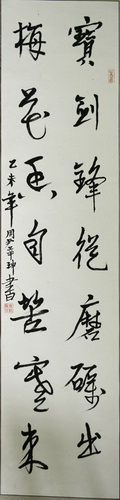 寶劍鋒從磨礪出
梅花香自苦寒來
乙未年